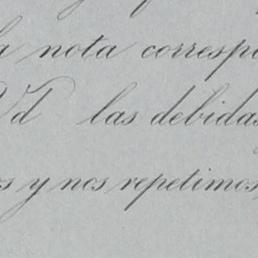 a nota correspo
Vd las debidas
os y nos repetimos